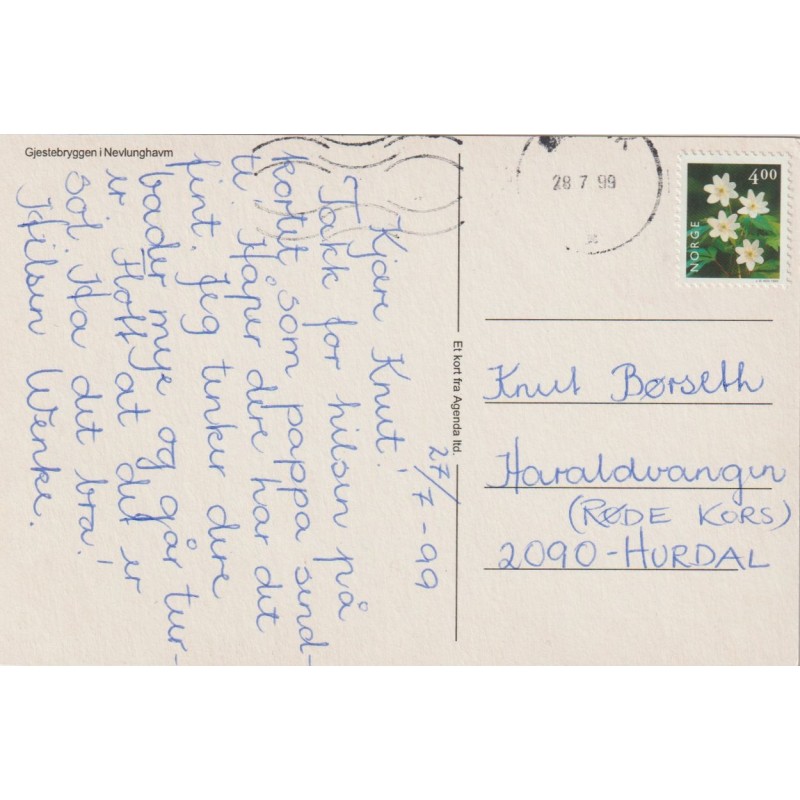 Gjestebryggen i Nevlunghavm
27/7-99
Kjære Knut!
Takk for hilsen på
kortet som pappa send-
ti. Håper dere har det
fint. Jeg tenker dere
bader mye og går tur-
er. Flott at det er
sol. Ha det bra!
Hilsen Wenke.
Et kort fra Agenda ltd.
28 7 99
NORGE
4,00
Knut Børseth
Haraldvangen
(RØDE KORS)
2090-HURDAL